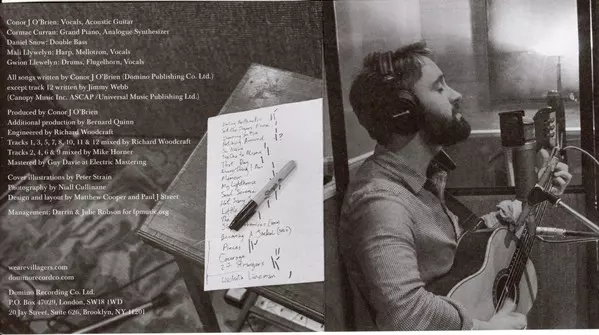 Conor J O'Brien: Vocals, Acoustic Guitar
Cormac Curran: Grand Piano, Analogue Synthesizer
Daniel Snow: Double Bass
Mali Llywelyn: Harp, Mellotron, Vocals
Gwion Llewelyn: Drums, Flugelhorn, Vocals
All songs written by Conor J O'Brien (Domino Publishing Co. Ltd.)
except track 12 written by Jimmy Webb
(Canopy Music Inc. ASCAP /Universal Music Publishing Ltd.)
Produced by Conor J O'Brien
Additional production by Bernard Quinn
Engineered by Richard Woodcraft
Tracks 1, 3, 5, 7, 8, 10, 11 & 12 mixed by Richard Woodcraft
Tracks 2, 4, 6 & 9 mixed by Mike Horner
Mastered by Guy Davie at Electric Mastering
Cover illustrations by Peter Strain
Photography by Niall Cullinane
Design and layout by Matthew Cooper and Paul J Street
Management: Darrin & Julie Robson for fpmusic.org
wearevillagers.com
dominorecordco.com
Domino Recording Co. Ltd.
P.O. Box 47029, London, SW18 1WD
20 Jay Street, Suite 626, Brooklyn, NY 11201
Nothing Arrived
So Naïve
That Day
Memoir
My Lighthouse
Soul Serene
Hot Scary
Little
The
Becoming a Jackal
Pieces
Courage
Wichita Lineman